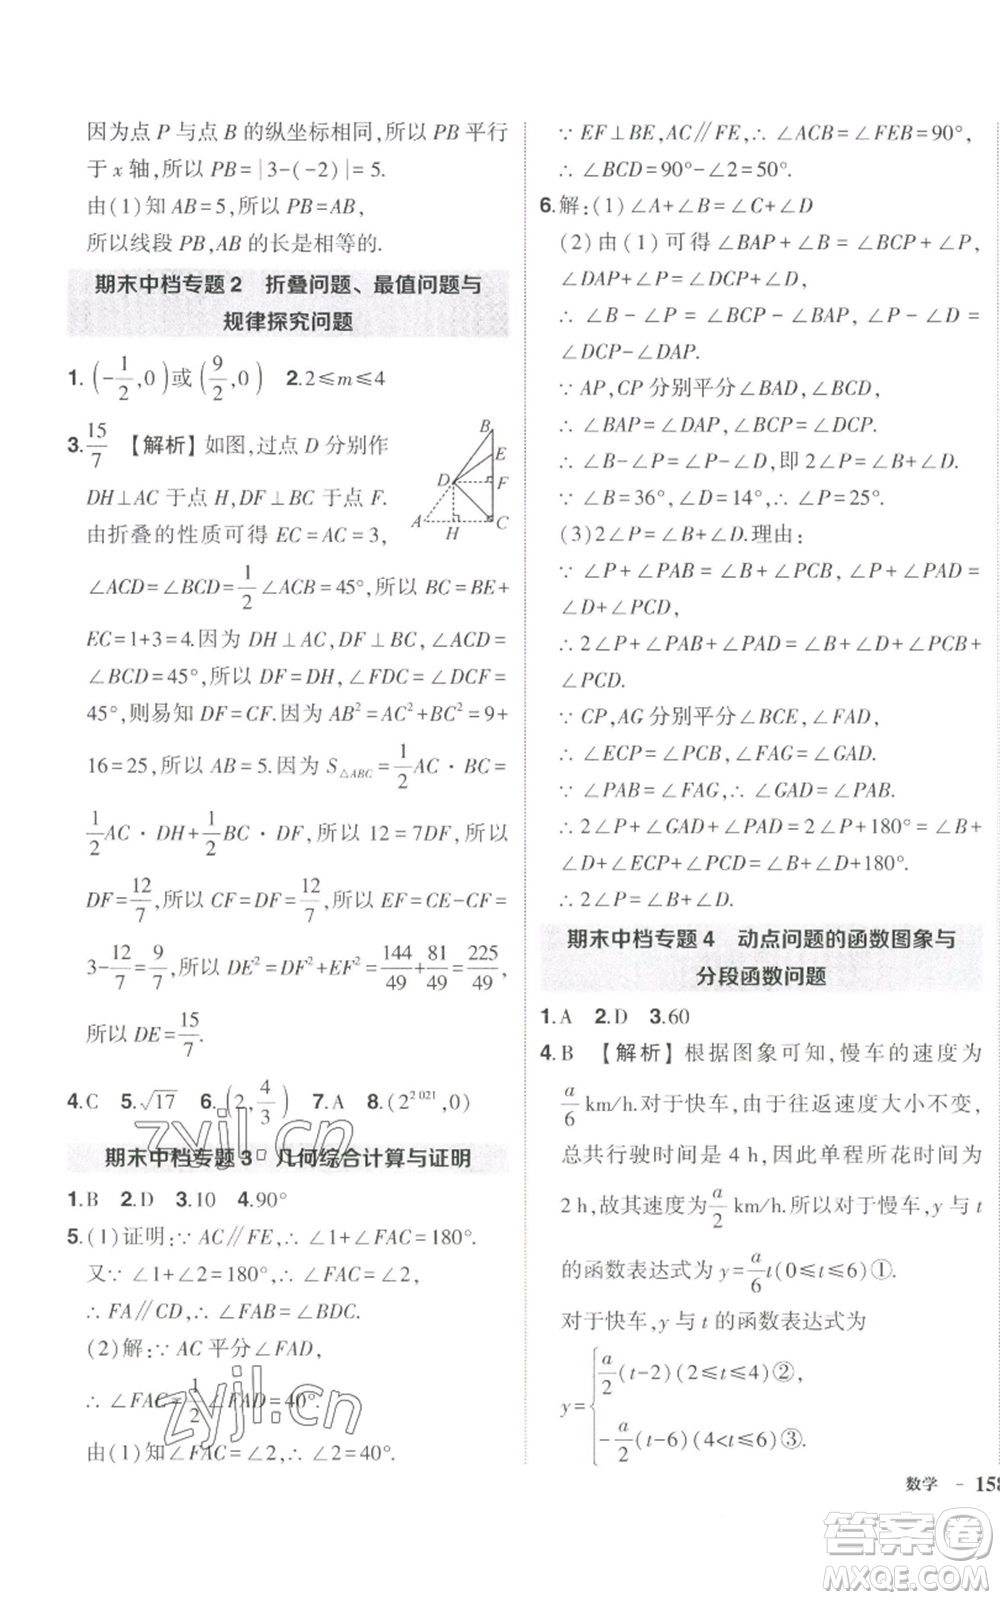 因为点 P 与点 B 的纵坐标相同,所以 PB 平行
于 x 轴,所以 PB=|3-(-2)|=5.
由(1)知 AB=5,所以 PB=AB,
所以线段 PB,AB 的长是相等的.
期末中档专题2 折叠问题、最值问题与
规律探究问题
1.(-1/2,0)或(9/2,0) 2.2≤m≤4
3.15/7 【解析】如图,过点 D 分别作
DH⊥AC 于点 H,DF⊥BC 于点 F.
由折叠的性质可得 EC=AC=3,
B
E
D
F
A
H
C
∠ACD=∠BCD=1/2∠ACB=45°,所以 BC=BE+
EC=1+3=4.因为 DH⊥AC,DF⊥BC,∠ACD=
∠BCD=45°,所以 DF=DH,∠FDC=∠DCF=
45°,则易知 DF=CF.因为 AB²=AC²+BC²=9+
16=25,所以 AB=5.因为 S△ABC=1/2AC·BC=
1/2AC·DH+1/2BC·DF,所以 12=7DF,所以
DF=12/7,所以 CF=DF=12/7,所以 EF=CE-CF=
3-12/7=9/7,所以 DE²=DF²+EF²=144/49+81/49=225/49,
所以 DE=15/7.
4.C 5.√17 6.(2,4/3) 7.A 8.(2^2 021,0)
期末中档专题3 几何综合计算与证明
1.B 2.D 3.10 4.90°
5.(1)证明:∵AC∥FE,∴∠1+∠FAC=180°.
又∵∠1+∠2=180°,∴∠FAC=∠2,
∴FA∥CD,∴∠FAB=∠BDC.
(2)解:∵AC 平分∠FAD,
∴∠FAC=1/2∠FAD=40°.
由(1)知∠FAC=∠2,∴∠2=40°.
∵EF⊥BE,AC∥FE,∴∠ACB=∠FEB=90°,
∴∠BCD=90°-∠2=50°.
6.解:(1)∠A+∠B=∠C+∠D
(2)由(1)可得∠BAP+∠B=∠BCP+∠P,
∠DAP+∠P=∠DCP+∠D,
∴∠B-∠P=∠BCP-∠BAP,∠P-∠D=
∠DCP-∠DAP.
∵AP,CP 分别平分∠BAD,∠BCD,
∴∠BAP=∠DAP,∠BCP=∠DCP,
∴∠B-∠P=∠P-∠D,即 2∠P=∠B+∠D.
∵∠B=36°,∠D=14°,∴∠P=25°.
(3)2∠P=∠B+∠D.理由:
∵∠P+∠PAB=∠B+∠PCB,∠P+∠PAD=
∠D+∠PCD,
∴2∠P+∠PAB+∠PAD=∠B+∠D+∠PCB+
∠PCD.
∵CP,AG 分别平分∠BCE,∠FAD,
∴∠ECP=∠PCB,∠FAG=∠GAD.
∵∠PAB=∠FAG,∴∠GAD=∠PAB.
∴2∠P+∠GAD+∠PAD=2∠P+180°=∠B+
∠D+∠ECP+∠PCD=∠B+∠D+180°.
∴2∠P=∠B+∠D.
期末中档专题4 动点问题的函数图象与
分段函数问题
1.A 2.D 3.60
4.B 【解析】根据图象可知,慢车的速度为
a/6 km/h.对于快车,由于往返速度大小不变,
总共行驶时间是 4 h,因此单程所花时间为
2 h,故其速度为 a/2 km/h.所以对于慢车,y 与 t
的函数表达式为 y=a/6 t(0≤t≤6)①.
对于快车,y 与 t 的函数表达式为
y={a/2(t-2)(2≤t≤4)②,
-a/2(t-6)(4<t≤6)③.
数学 - 158
zyjl.cn
zyjl.cn
答案卷
MXQE.COM